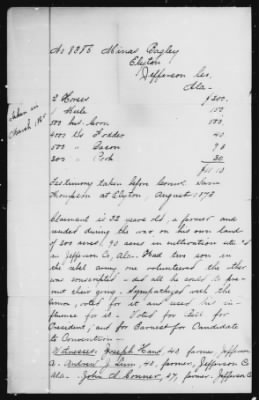 Minas Bagley
Elyton
Jefferson Co.
Ala.
2 Horses $200.
1 Mule 150
Taken in
March, 1865
500 bus. Corn
4000 lbs Fodder 40
500 " Bacon
300 " Pork 30
Testimony taken before
at Elyton, August 1872
Claimant is 52 years old, a farmer and
resided during the war on his own land
of 200 acres, 90 acres in cultivation
in Jefferson Co, Ala. Had two sons in
the rebel army one volunteered the other
was conscripted - and all he could do
their going. Sympathized with the
Union, voted for it and used his in-
fluence for it. Voted for Bell for
President; and for Earnest for Candidate
to Convention -
Witnesses: Joseph Hand, 40, farmer, Jefferson
Andrew J. 40, farmer, Jefferson Co
Ala. John A Conner, 47, farmer, Jefferson Co